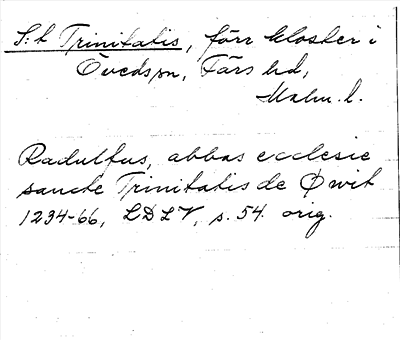 S:t Trinitatis, förr kloster i
Öveds sn, Färs hd,
Malm. l.
Radulfus, abbas ecclesie
sancte Trinitatis de Øwit
1234-66, LDLV, s. 54. orig.